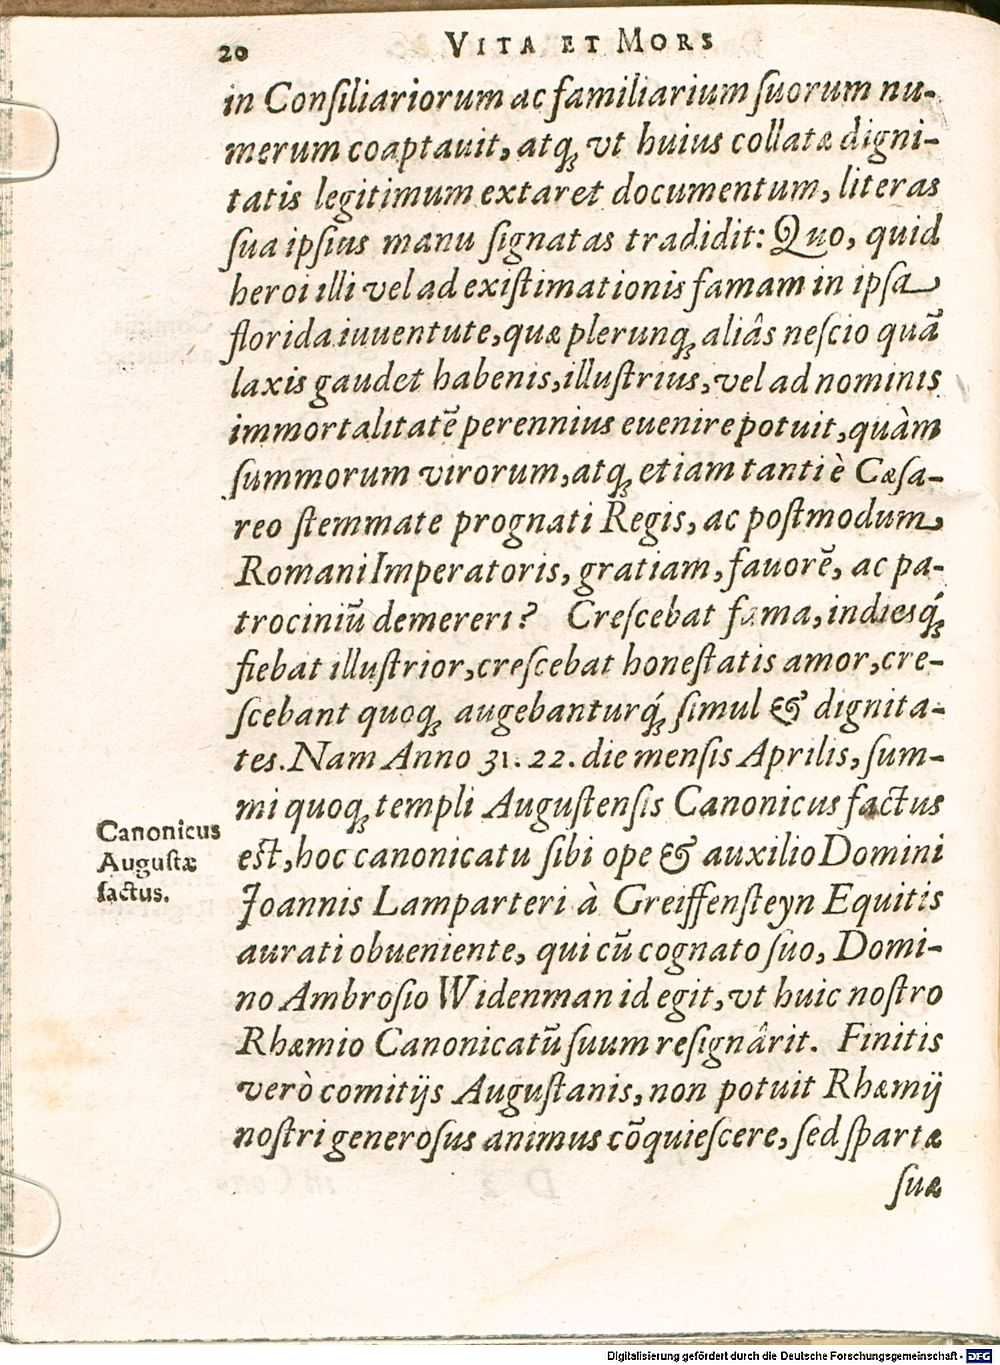 20 VITA ET MORS
in Conſiliariorum ac familiarium ſuorum nu-
merum coaptauit, atq; vt huius collatæ digni-
tatis legitimum extaret documentum, literas
ſua ipſius manu ſignatas tradidit: Quo, quid
heroi illi vel ad exiſtimationis famam in ipſa
florida iuuentute, quæ plerunq; aliâs neſcio quā
laxis gaudet habenis, illuſtrius, vel ad nominis
immortalitatē perennius euenire potuit, quàm
ſummorum virorum, atq; etiam tanti è Cæſa-
reo ſtemmate prognati Regis, ac poſtmodum
Romani Imperatoris, gratiam, fauorē, ac pa-
trociniū demereri? Creſcebat fama, indiesq́;
fiebat illuſtrior, creſcebat honeſtatis amor, cre-
ſcebant quoq; augebanturq́; ſimul & dignita-
tes. Nam Anno 31. 22. die menſis Aprilis, ſum-
mi quoq; templi Auguſtenſis Canonicus factus
Canonicus
Auguſtæ
factus.
eſt, hoc canonicatu ſibi ope & auxilio Domini
Joannis Lamparteri à Greiffenſteyn Equitis
aurati obueniente, qui cū cognato ſuo, Domi-
no Ambroſio Widenman id egit, vt huic noſtro
Rhæmio Canonicatū ſuum reſignârit. Finitis
verò comitijs Auguſtanis, non potuit Rhæmij
noſtri generoſus animus cōquieſcere, ſed ſpartæ
ſuæ
Digitalisierung gefördert durch die Deutsche Forschungsgemeinschaft - DFG